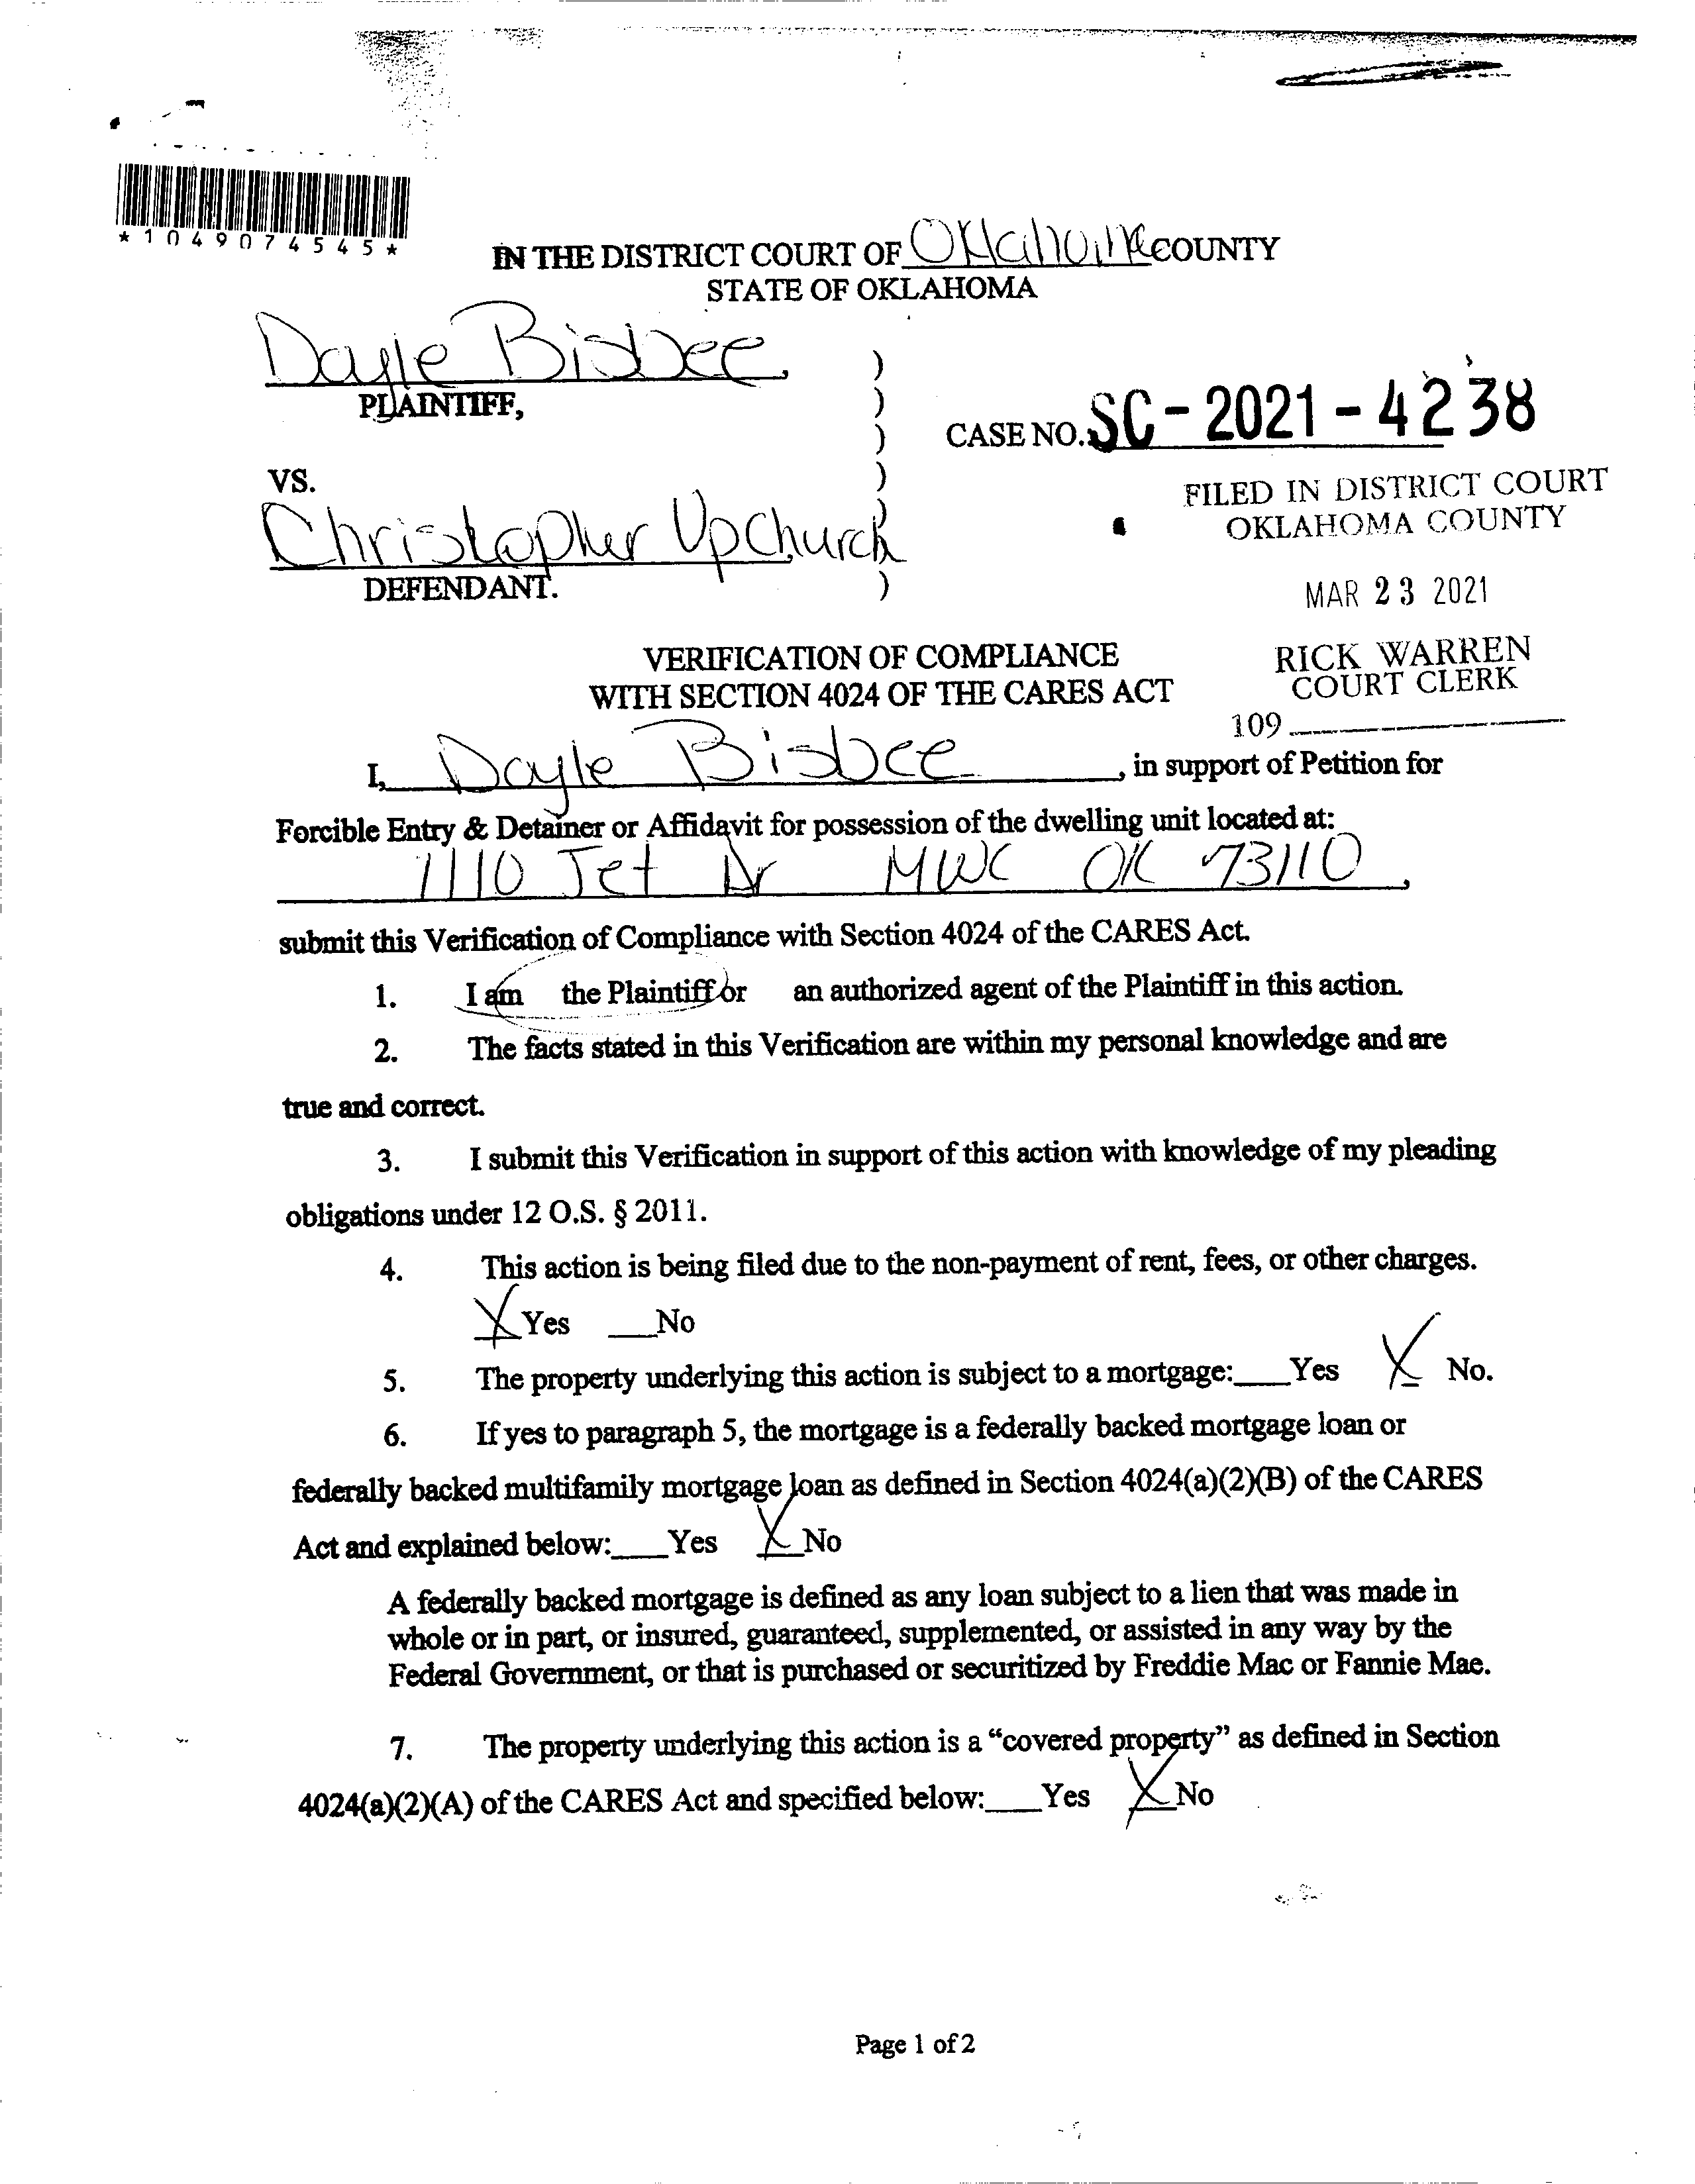 *1049074545*
IN THE DISTRICT COURT OF Oklahoma COUNTY
STATE OF OKLAHOMA
Dayle Bisbee,
PLAINTIFF,
)
)
)
)
)
)
CASE NO. SC-2021-4238
VS.
Christopher Upchurch
DEFENDANT.
FILED IN DISTRICT COURT
OKLAHOMA COUNTY
MAR 23 2021
RICK WARREN
COURT CLERK
109
VERIFICATION OF COMPLIANCE
WITH SECTION 4024 OF THE CARES ACT
I, Dayle Bisbee, in support of Petition for
Forcible Entry & Detainer or Affidavit for possession of the dwelling unit located at:
1110 Jet Dr MWC OK 73110,
submit this Verification of Compliance with Section 4024 of the CARES Act.
1. I am the Plaintiff or an authorized agent of the Plaintiff in this action.
2. The facts stated in this Verification are within my personal knowledge and are
true and correct.
3. I submit this Verification in support of this action with knowledge of my pleading
obligations under 12 O.S. § 2011.
4. This action is being filed due to the non-payment of rent, fees, or other charges.
X Yes ___No
5. The property underlying this action is subject to a mortgage:___Yes X No.
6. If yes to paragraph 5, the mortgage is a federally backed mortgage loan or
federally backed multifamily mortgage loan as defined in Section 4024(a)(2)(B) of the CARES
Act and explained below:___Yes X No
A federally backed mortgage is defined as any loan subject to a lien that was made in
whole or in part, or insured, guaranteed, supplemented, or assisted in any way by the
Federal Government, or that is purchased or securitized by Freddie Mac or Fannie Mae.
7. The property underlying this action is a “covered property” as defined in Section
4024(a)(2)(A) of the CARES Act and specified below:___Yes X No
Page 1 of 2